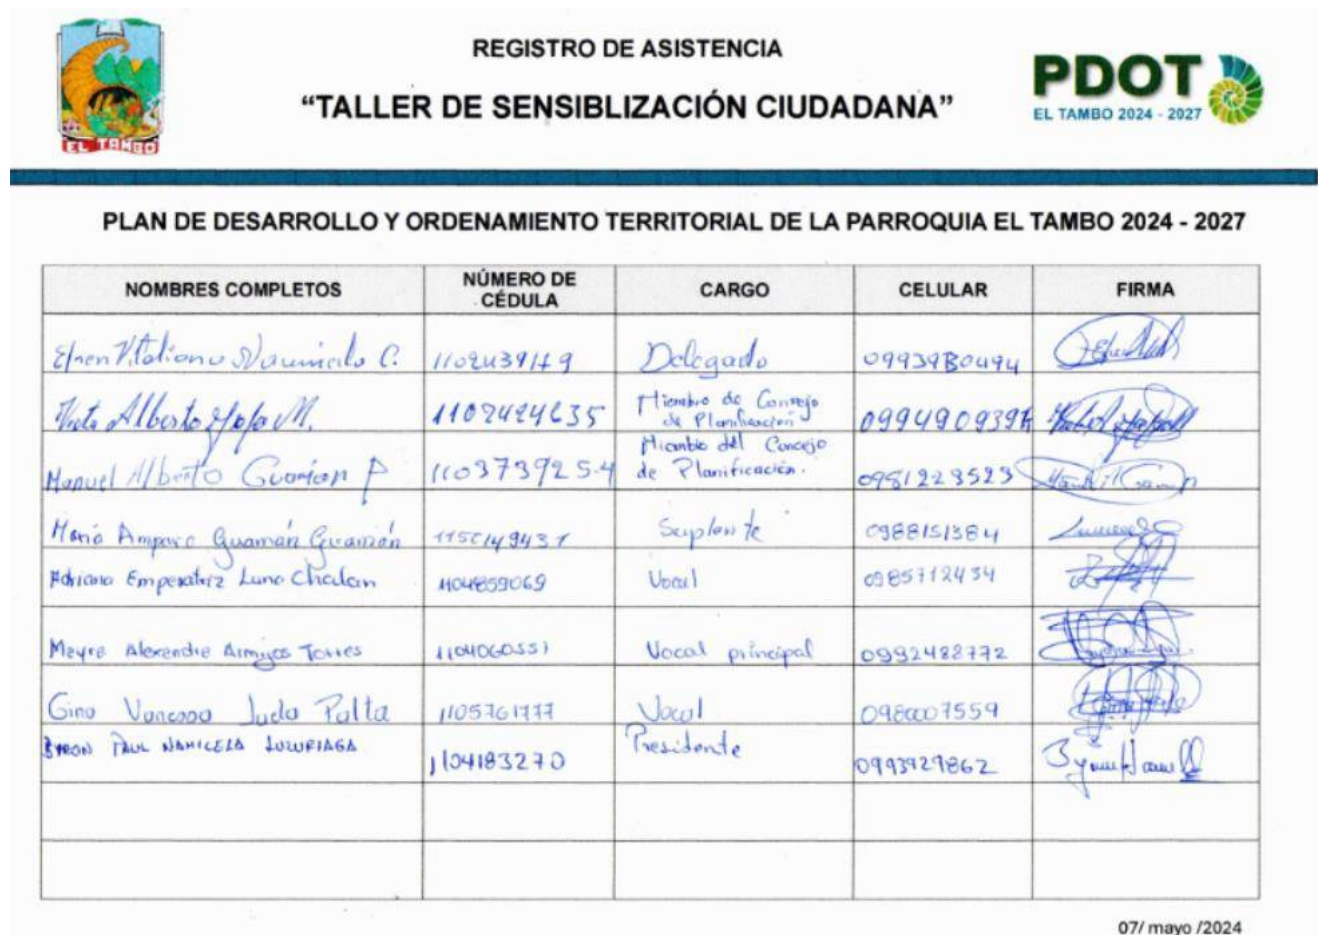 EL TAMBO
REGISTRO DE ASISTENCIA
“TALLER DE SENSIBLIZACIÓN CIUDADANA”
PDOT
EL TAMBO 2024 - 2027
PLAN DE DESARROLLO Y ORDENAMIENTO TERRITORIAL DE LA PARROQUIA EL TAMBO 2024 - 2027
NOMBRES COMPLETOS NÚMERO DE CÉDULA CARGO CELULAR FIRMA
Efren Vitaliano C. Delegado
Alberto M. 1102424635 Miembro de Consejo de Planificación
Manuel Alberto P 110373925-4 Miembro del Concejo de Planificación. 0981223523
María Amparo Guamán Guamán Suplente 0988151384
Emperatriz Luna Chalan 1104859069 Vocal 0985712434
Mayra Alexandra Armijos Torres 1104060551 Vocal principal 0992488772
Gina Vanessa Judo Palta 1105761777 Vocal 0980007559
BYRON PAUL NAMICELA LUZURIAGA 1104183270 Presidente 0993929862
07/ mayo /2024